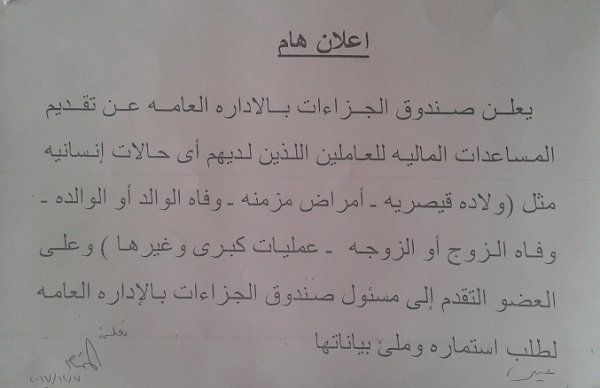 اعلان هام
يعلن صندوق الجزاءات بالاداره العامه عن تقديم
المساعدات الماليه للعاملين اللذين لديهم أى حالات إنسانيه
مثل (ولاده قيصريه - أمراض مزمنه - وفاه الوالد أو الوالده -
وفاه الزوج أو الزوجه - عمليات كبرى وغيرها ) وعلى
العضو التقدم إلى مسئول صندوق الجزاءات بالإداره العامه
لطلب استماره وملئ بياناتها